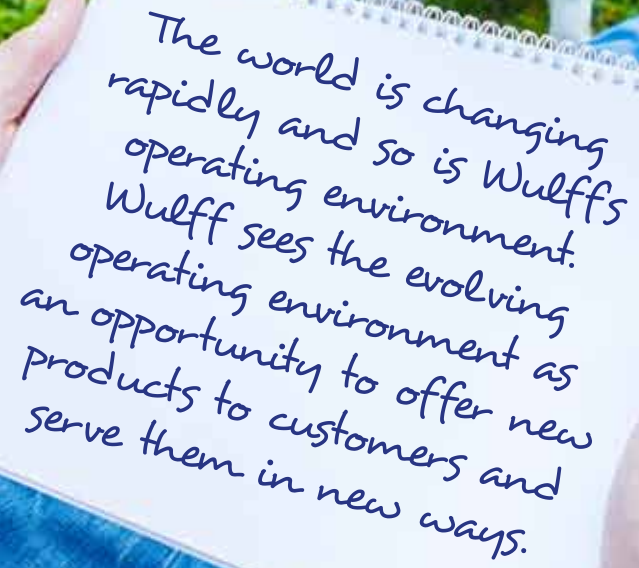 The world is changing
rapidly and so is Wulffs
operating environment.
Wulff sees the evolving
operating environment as
an opportunity to offer new
products to customers and
serve them in new ways.